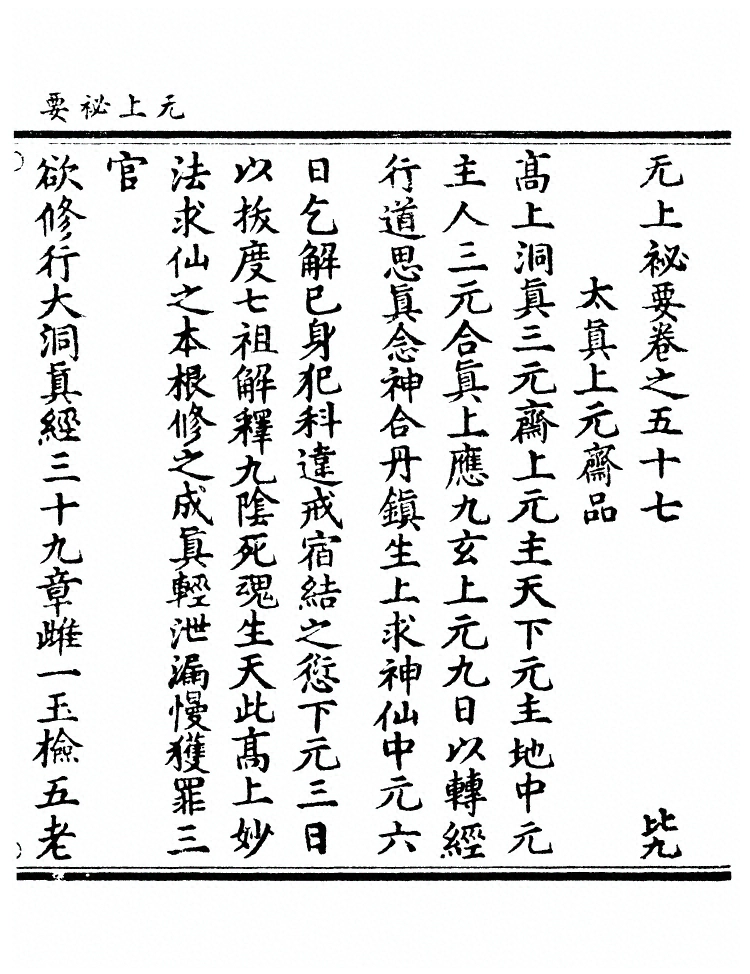 元上祕要
无上祕要卷之五十七 毗九
太眞上元齋品
髙上洞眞三元齋上元主天下元主地中元
主人三元合眞上應九玄上元九日以轉經
行道思眞念神合丹鎭生上求神仙中元六
日乞解巳身犯科違戒宿結之愆下元三日
以拔度七祖解釋九隂死魂生天此髙上妙
法求仙之本根修之成眞輕泄漏慢獲罪三
官
欲修行大洞眞經三十九章雌一玉檢五老